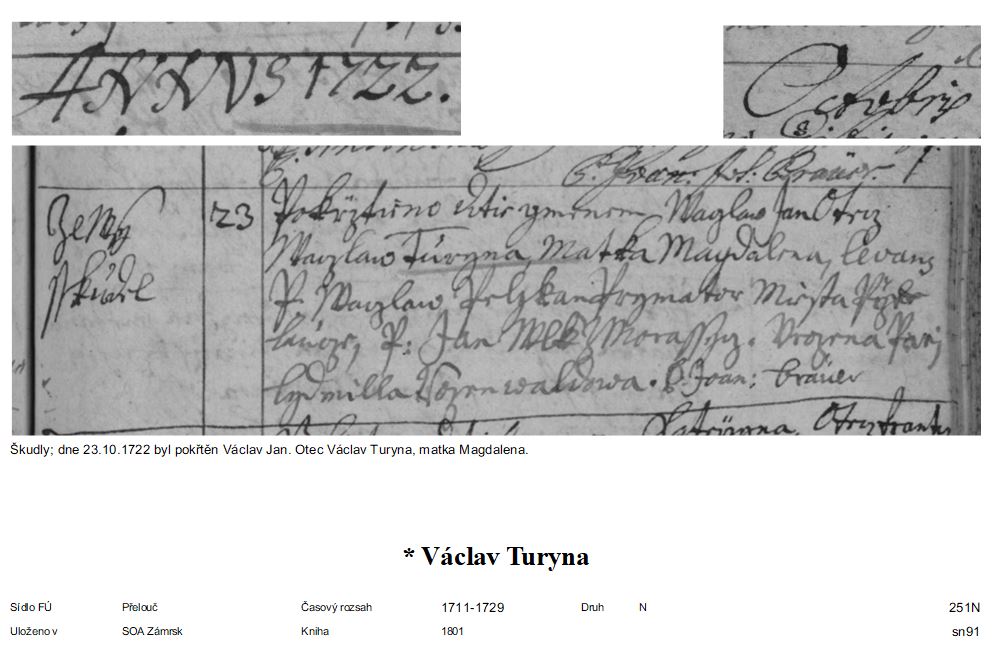 ANNVS 1722.
Octobris
Ze Wsy 23 Pokrztieno ditie gmenem Waczlaw Jan Otecz
Skudl Waczlaw Turyna, Matka Magdalena, levans
P. Waczlaw Pelzkan Prymator Miesta Prze
laucze, P: Jan Morawssky. Urozena Panj
Lydmilla. P. Joan: Bräuer
Škudly; dne 23.10.1722 byl pokřtěn Václav Jan. Otec Václav Turyna, matka Magdalena.
* Václav Turyna
Sídlo FÚ Přelouč Časový rozsah 1711-1729 Druh N 251N
Uloženo v SOA Zámrsk Kniha 1801 sn91